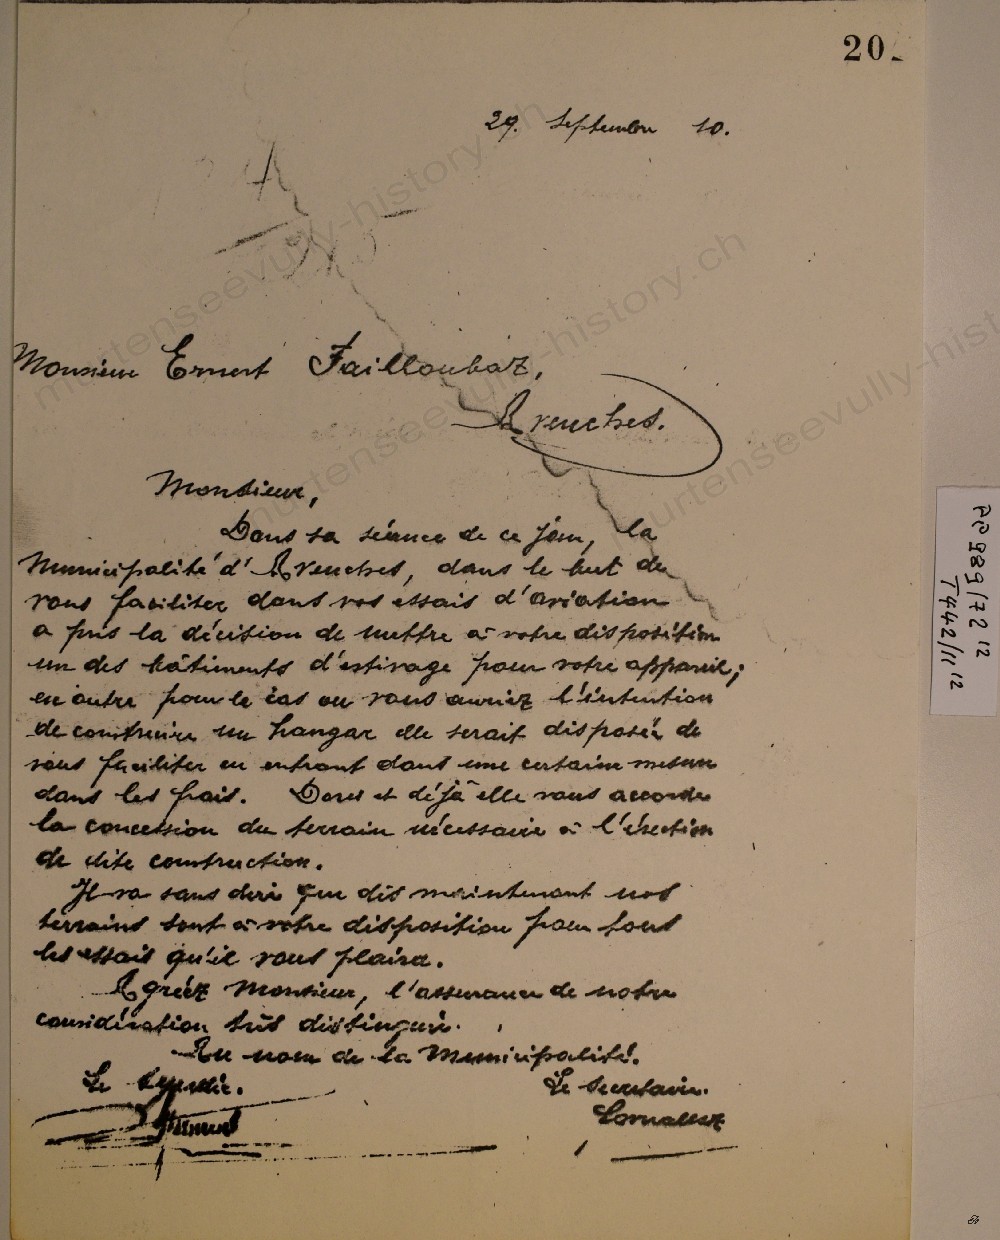 20
29. Septembre 10.
Monsieur Ernest Failloubaz,
Avenches.
Monsieur,
Dans sa séance de ce jour, la
Municipalité d'Avenches, dans le but de
vous faciliter dans vos essais d'aviation
a pris la décision de mettre à votre disposition
un des bâtiments d'estivage pour votre appareil;
en outre pour le cas ou vous auriez l'intention
de construire un hangar elle serait disposée de
vous faciliter en entrant dans une certaine mesure
dans les frais. Dores et déjà elle vous accorde
la concession du terrain nécessaire à l'érection
de dite construction.
Il va sans dire que dès maintenant nos
terrains sont à votre disposition pour tous
les essais qu'il vous plaira.
Agréez Monsieur, l'assurance de notre
considération très distinguée.
Au nom de la Municipalité.
Le Syndic. Le Secrétaire.
Cornalluz
PP 889/72 12
T 442/11 12
murtenseevully-history.ch
murtenseevully-history.ch
murtenseevully-history.ch